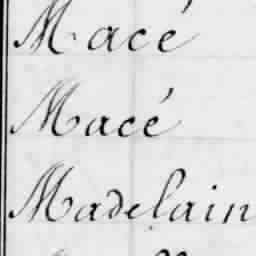 Macé
Macé
Madelain